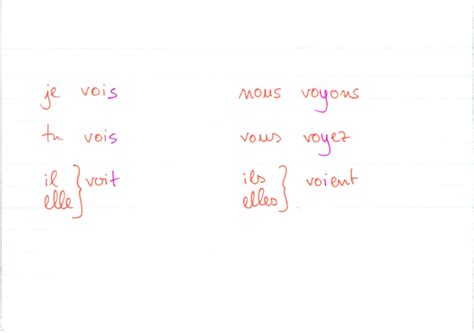 je vois
tu vois
il
elle } voit
nous voyons
vous voyez
ils
elles } voient